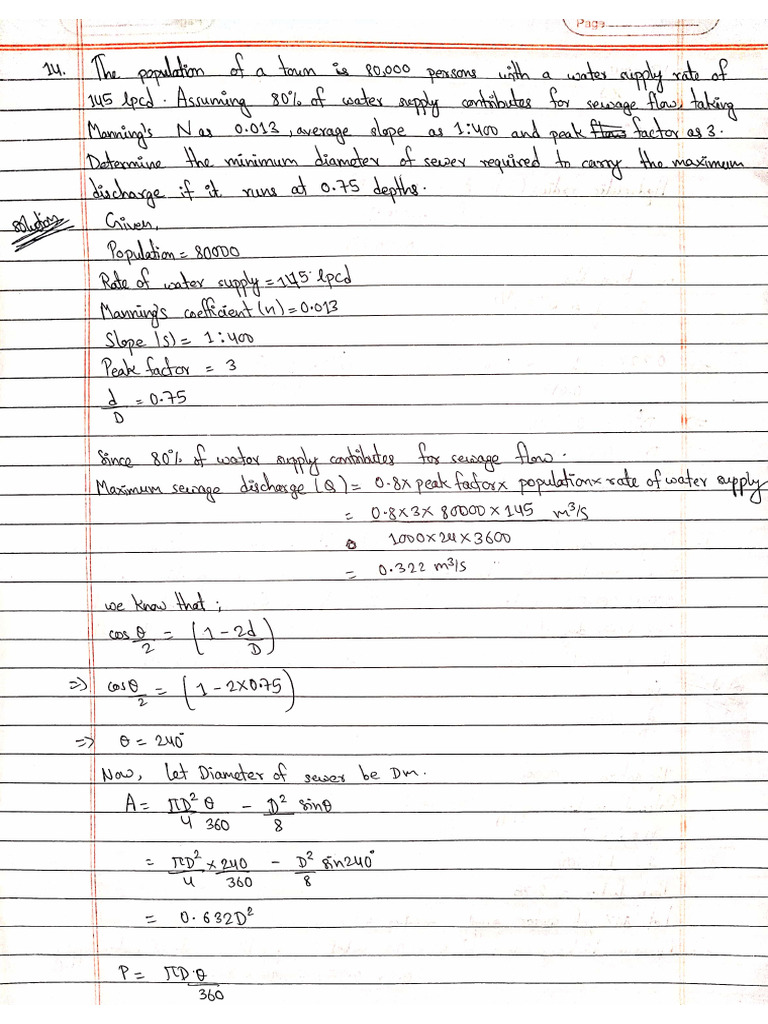 Page
14. The population of a town is 80,000 persons with a water supply rate of
145 lpcd. Assuming 80% of water supply contributes for sewage flow, taking
Manning's N as 0.013, average slope as 1:400 and peak factor as 3.
Determine the minimum diameter of sewer required to carry the maximum
discharge if it runs at 0.75 depths.
Solution
Given,
Population = 80000
Rate of water supply = 145 lpcd
Manning's coefficient (n) = 0.013
Slope (s) = 1:400
Peak factor = 3
d/D = 0.75
Since 80% of water supply contributes for sewage flow.
Maximum sewage discharge (Q) = 0.8 × peak factor × population × rate of water supply
= 0.8×3×80000×145 m³/s
1000×24×3600
= 0.322 m³/s
we know that;
cos θ/2 = (1 - 2d/D)
=> cos θ/2 = (1 - 2×0.75)
=> θ = 240°
Now, let Diameter of sewer be Dm.
A = πD²/4 θ/360 - D²/8 sinθ
= πD²/4 × 240/360 - D²/8 sin240°
= 0.632D²
P = πD·θ/360